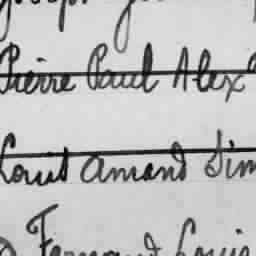 Pierre Paul Alex
Louis Amand Sim
Fernand Louis